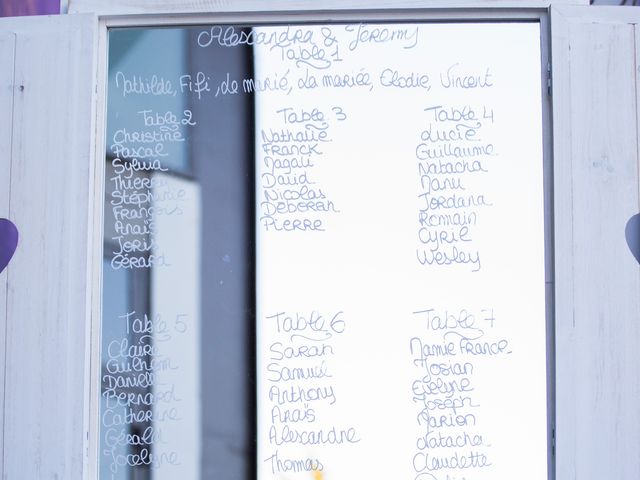 Alessandra & Jérémy
Table 1
Mathilde, Fifi, le marié, La mariée, Elodie, Vincent
Table 2
Christine
Pascal
Sylvia
Thierry
Stéphanie
François
Anaïs
Joris
Gérard
Table 3
Nathalie
Franck
Magali
David
Nicolas
Deborah
Pierre
Table 4
Lucie
Guillaume
Natacha
Manu
Jordana
Romain
Cyril
Wesley
Table 5
Claire
Guilhem
Danielle
Bernard
Catherine
Gérald
Jocelyne
Table 6
Sarah
Samuel
Anthony
Anaïs
Alexandre
Thomas
Table 7
Mamie France
Josian
Evelyne
Joseph
Marion
Natacha
Claudette